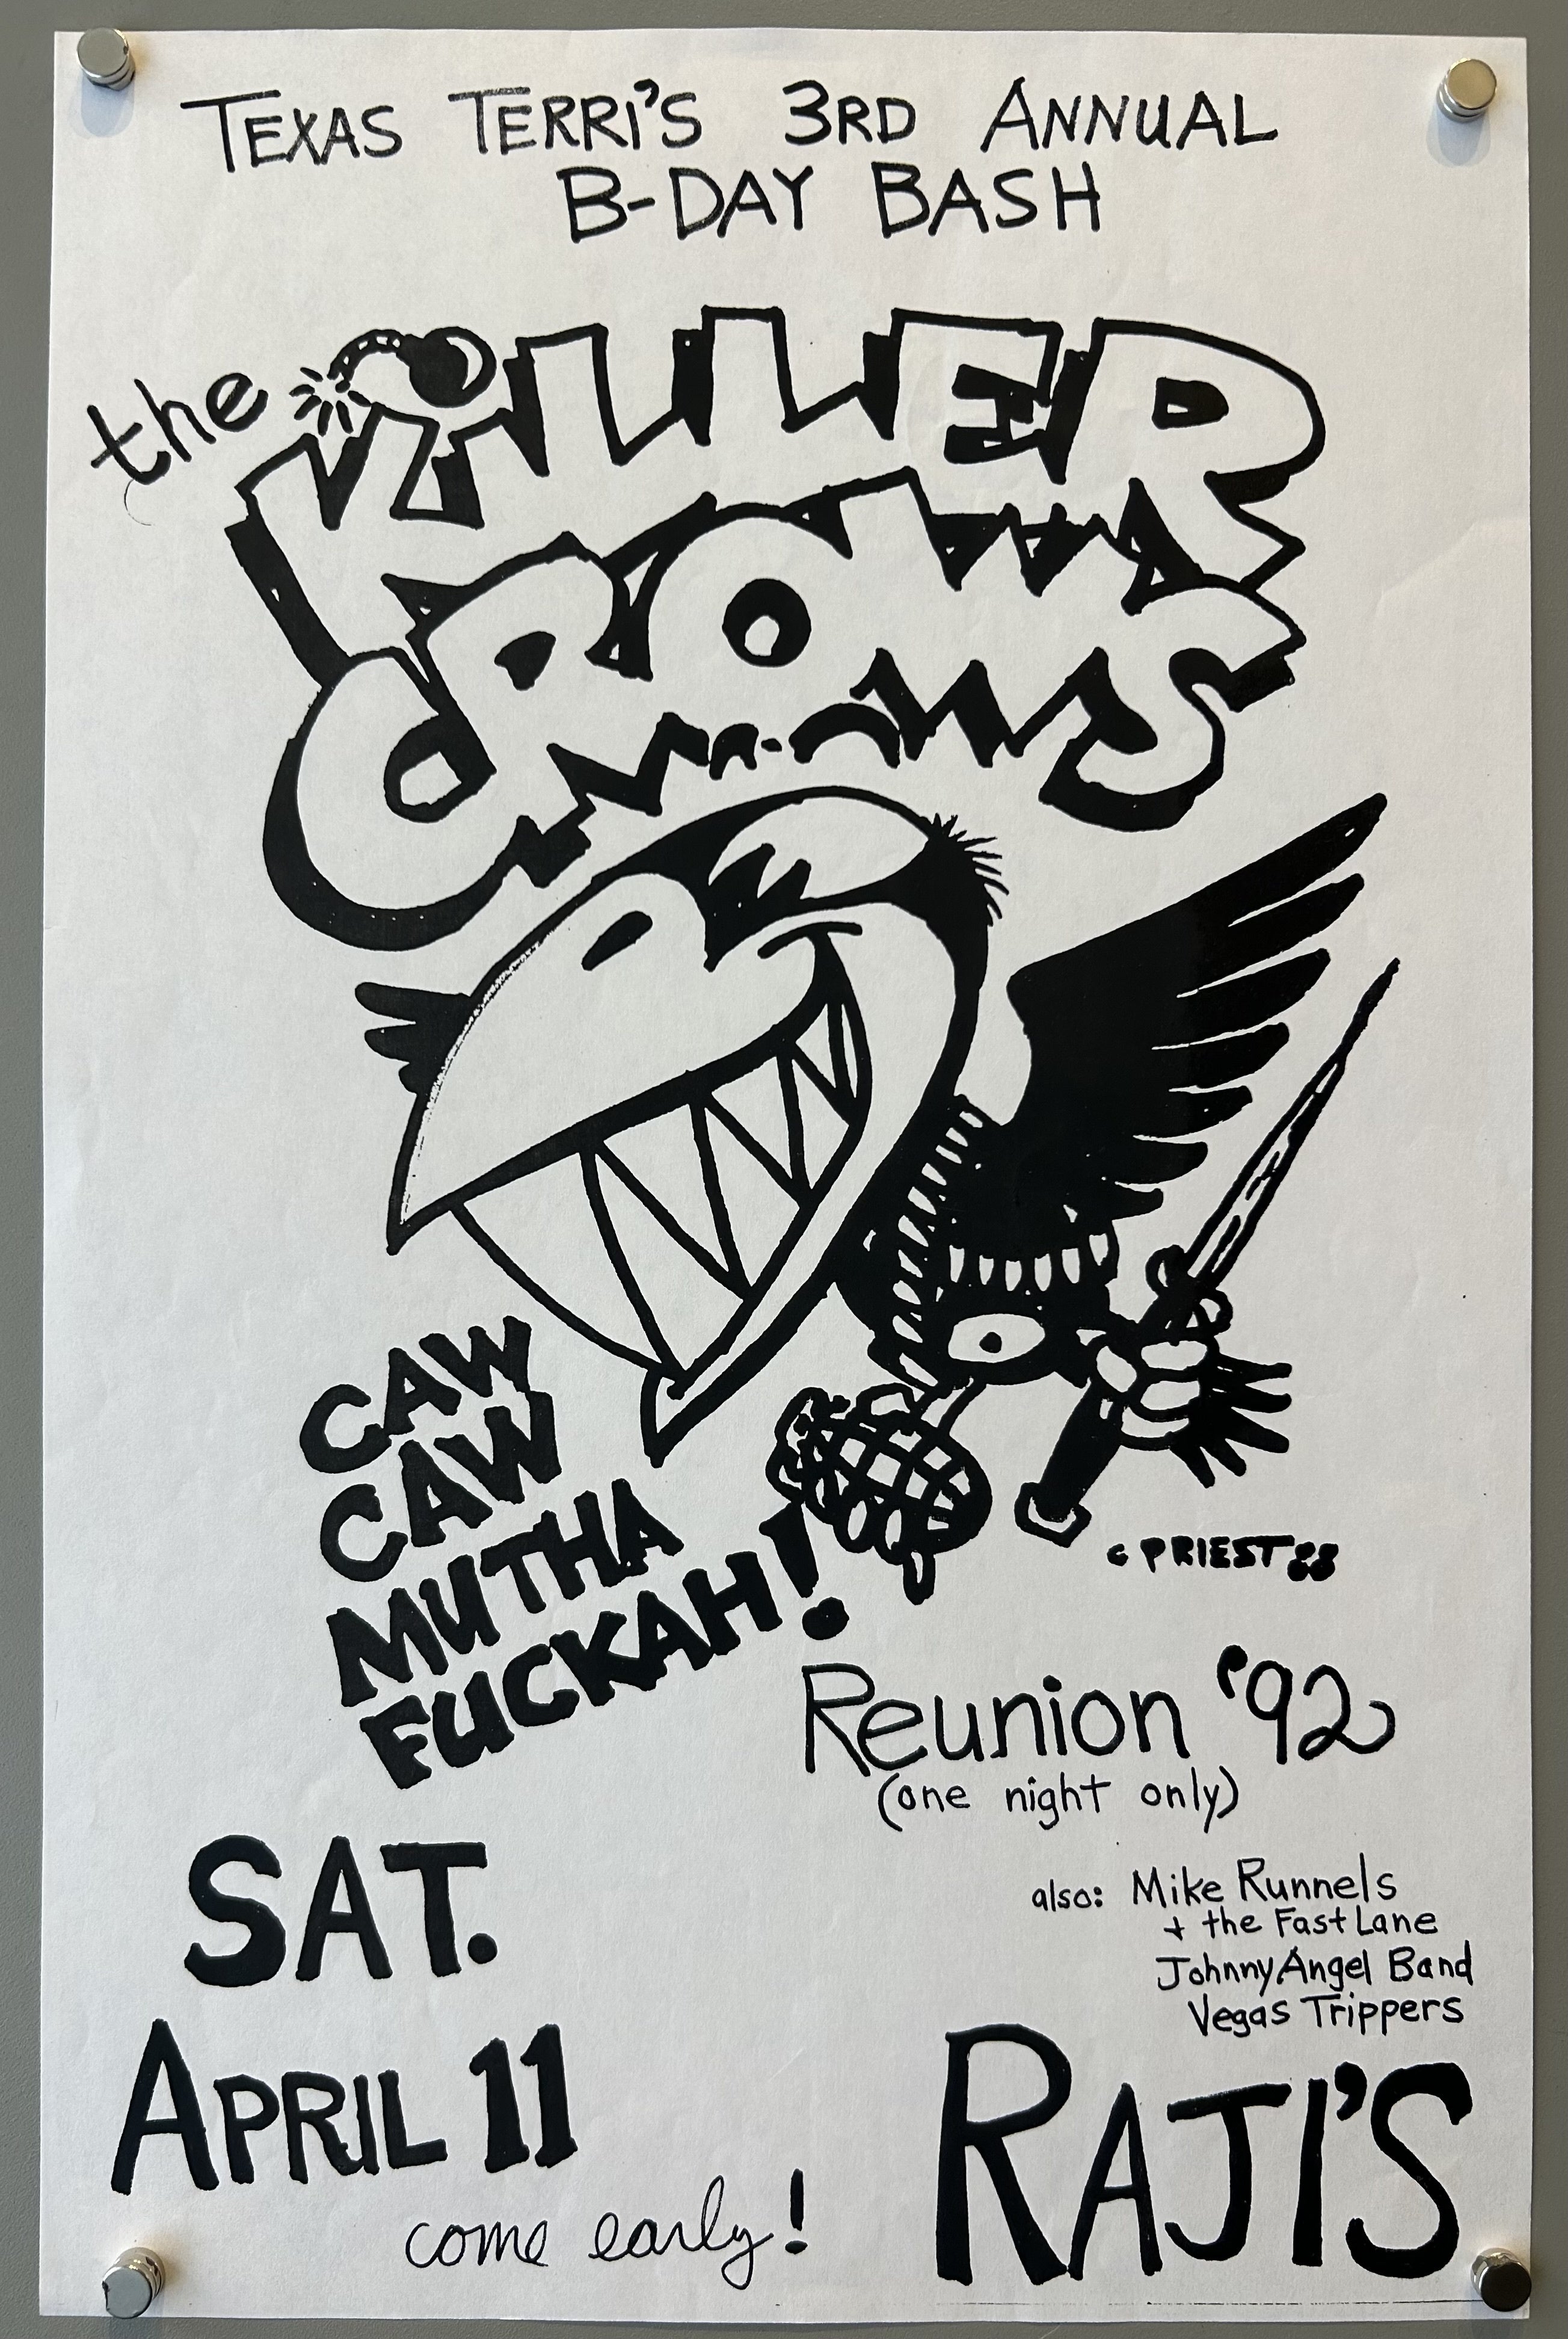 TEXAS TERRI'S 3RD ANNUAL
B-DAY BASH
the
KILLER
CROWS
CAW
CAW
MUTHA
FUCKAH!
© PRIEST 88
Reunion '92
(one night only)
also: Mike Runnels
+ the Fast Lane
Johnny Angel Band
Vegas Trippers
SAT.
APRIL 11
come early!
RAJI'S